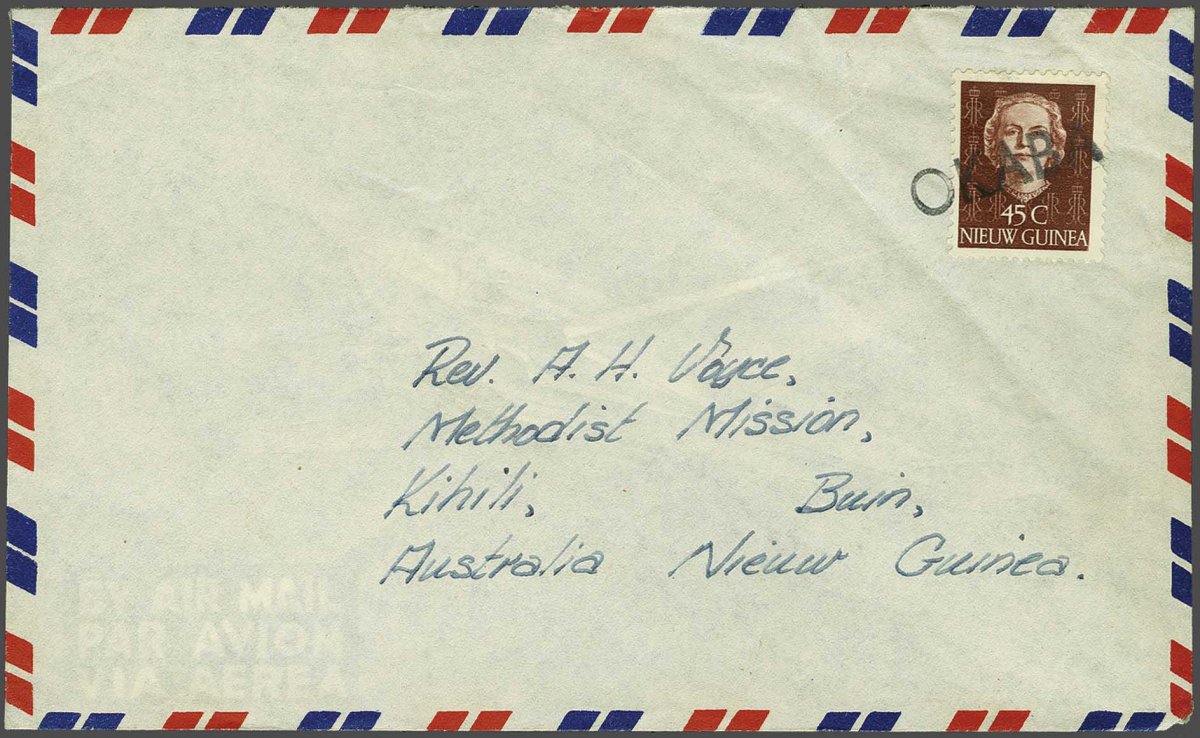 OKABA
45 C
NIEUW GUINEA
Rev. A. H. Voyce,
Methodist Mission,
Kihili, Buin,
Australia Nieuw Guinea.
BY AIR MAIL
PAR AVION
VIA AEREA